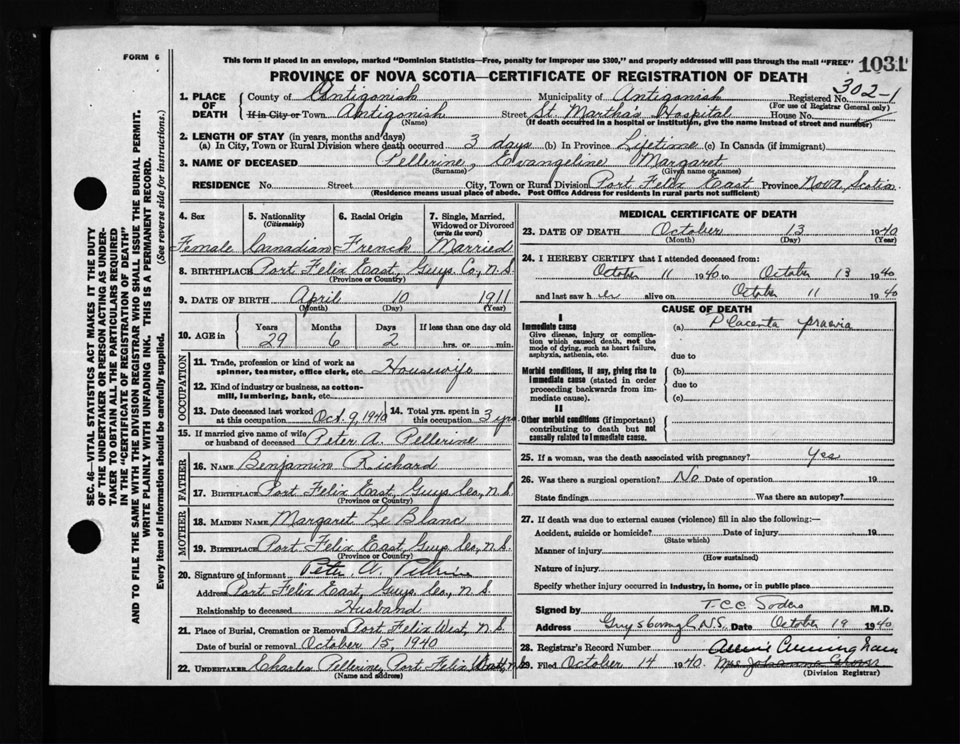 FORM 6
This form if placed in an envelope, marked "Dominion Statistics—Free, penalty for improper use $300," and properly addressed will pass through the mail "FREE"
1031
PROVINCE OF NOVA SCOTIA—CERTIFICATE OF REGISTRATION OF DEATH
302-1
1. PLACE OF DEATH County of Antigonish Municipality of Antigonish Registered No.
(For use of Registrar General only)
If in City or Town Antigonish Street St. Martha's Hospital House No.
(Name) (If death occurred in a hospital or institution, give the name instead of street and number)
2. LENGTH OF STAY (in years, months and days)
(a) In City, Town or Rural Division where death occurred 3 days (b) In Province Lifetime (c) In Canada (if immigrant)
3. NAME OF DECEASED Pellerine, Evangeline Margaret
(Surname) (Given name or names)
RESIDENCE No. Street City, Town or Rural Division Port Felix East Province Nova Scotia
(Residence means usual place of abode. Post Office Address for residents in rural parts not sufficient)
4. Sex 5. Nationality (Citizenship) 6. Racial Origin 7. Single, Married, Widowed or Divorced (write the word)
Female Canadian French Married
8. BIRTHPLACE Port Felix East, Guys. Co, N.S.
(Province or Country)
9. DATE OF BIRTH April 10 1911
(Month) (Day) (Year)
10. AGE in Years Months Days If less than one day old
29 6 2 hrs. or min.
OCCUPATION
11. Trade, profession or kind of work as spinner, teamster, office clerk, etc. Housewife
12. Kind of industry or business, as cotton-mill, lumbering, bank, etc.
13. Date deceased last worked at this occupation Oct. 9, 1940 14. Total yrs. spent in this occupation 3 yrs.
15. If married give name of wife or husband of deceased Peter A. Pellerine
FATHER
16. NAME Benjamin Richard
17. BIRTHPLACE Port Felix East, Guys Co, N.S.
(Province or Country)
MOTHER
18. MAIDEN NAME Margaret Le Blanc
19. BIRTHPLACE Port Felix East, Guys Co, N.S.
(Province or Country)
20. Signature of informant Peter A. Pellerine
Address Port Felix East, Guys. Co., N.S.
Relationship to deceased Husband
21. Place of Burial, Cremation or Removal Port Felix West, N.S.
Date of burial or removal October 15, 1940
22. UNDERTAKER Charles Pellerine, Port Felix
(Name and address)
MEDICAL CERTIFICATE OF DEATH
23. DATE OF DEATH October 13 1940
(Month) (Day) (Year)
24. I HEREBY CERTIFY that I attended deceased from:
October 11 1940 to October 13 1940
and last saw her alive on October 11 1940
CAUSE OF DEATH
I
Immediate cause (a) Placenta praevia
Give disease, injury or complication which caused death, not the mode of dying, such as heart failure, asphyxia, asthenia, etc.
due to
Morbid conditions, if any, giving rise to immediate cause (stated in order proceeding backwards from immediate cause).
(b)
due to
(c)
II
Other morbid conditions (if important) contributing to death but not causally related to immediate cause.
25. If a woman, was the death associated with pregnancy? Yes
26. Was there a surgical operation? No Date of operation 19
State findings Was there an autopsy?
27. If death was due to external causes (violence) fill in also the following:—
Accident, suicide or homicide? Date of injury 19
(State which)
Manner of injury
(How sustained)
Nature of injury
Specify whether injury occurred in industry, in home, or in public place
Signed by T.C.C. Sodero M.D.
Address Guysborough N.S. Date October 19 1940
28. Registrar's Record Number
Cunningham
29. Filed October 14 1940. Mrs. Johanna
(Division Registrar)
SEC. 46—VITAL STATISTICS ACT MAKES IT THE DUTY
OF THE UNDERTAKER OR PERSON ACTING AS UNDER-
TAKER TO OBTAIN ALL THE PARTICULARS REQUIRED
IN THE "CERTIFICATE OF REGISTRATION OF DEATH"
AND TO FILE THE SAME WITH THE DIVISION REGISTRAR WHO SHALL ISSUE THE BURIAL PERMIT.
WRITE PLAINLY WITH UNFADING INK. THIS IS A PERMANENT RECORD.
Every item of information should be carefully supplied. (See reverse side for instructions.)